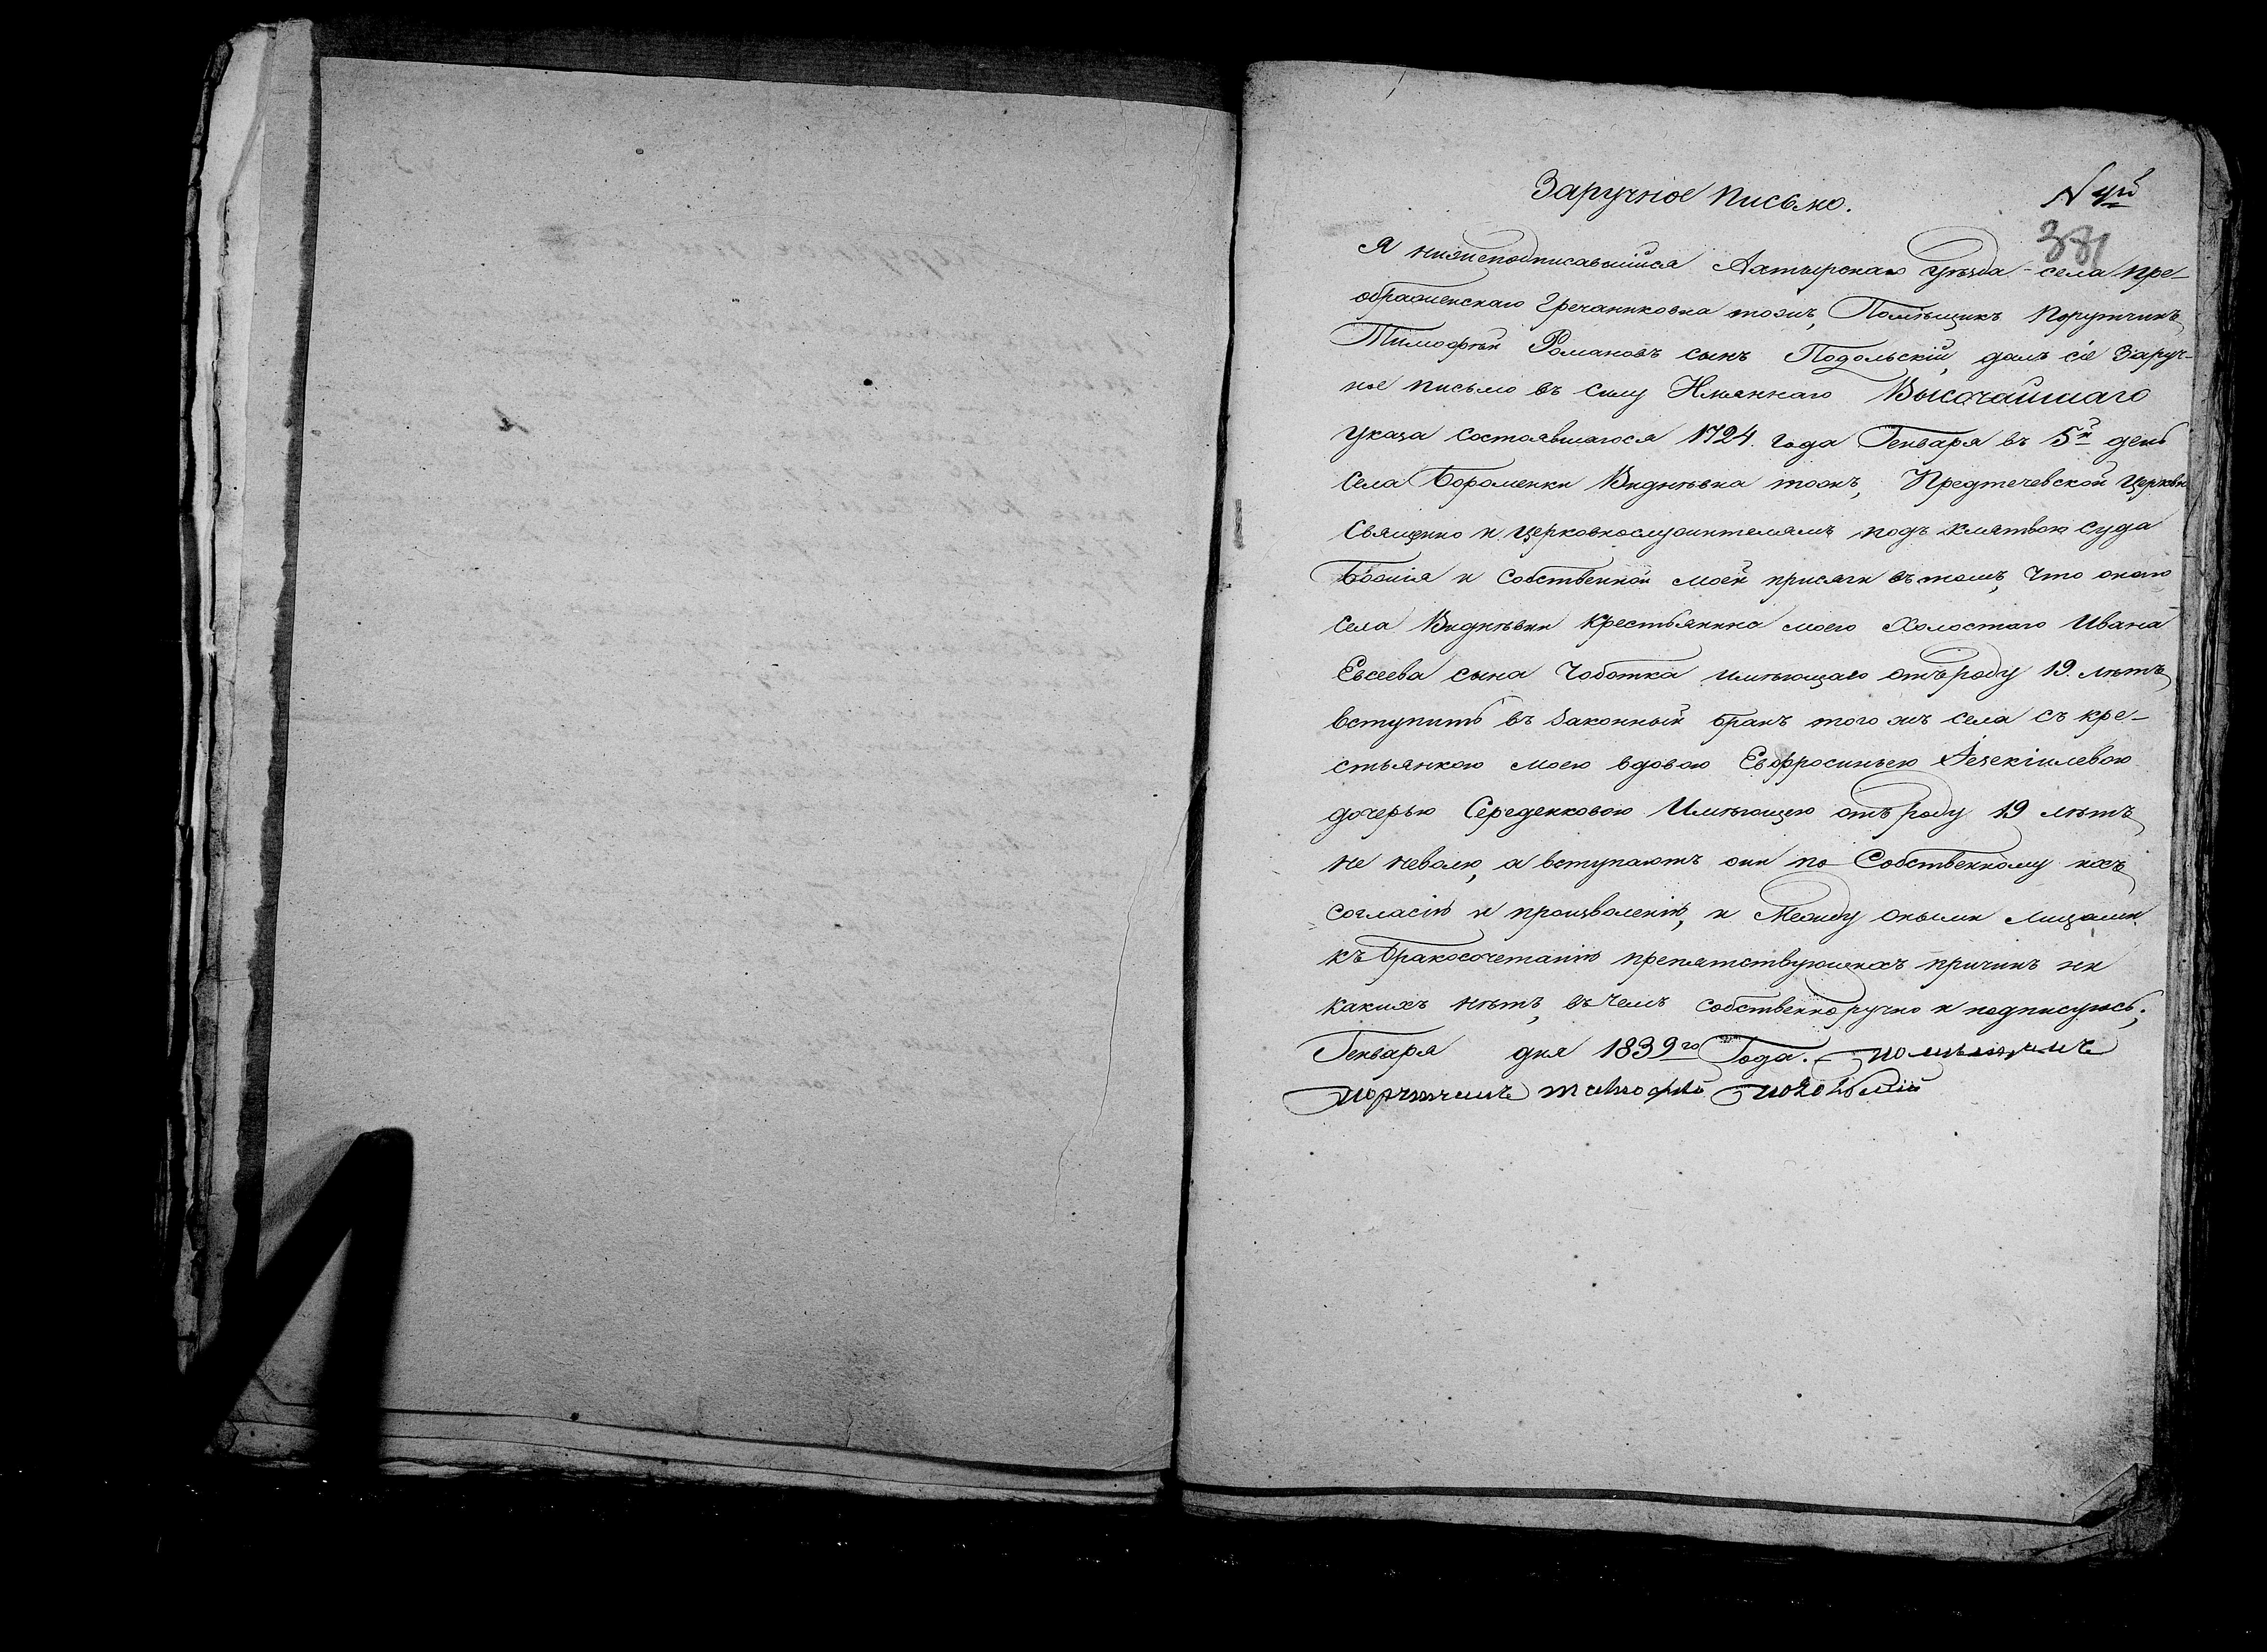 Заручное письмо.
N 4й
381
Я нижеподписавшійся Ахтырскаго уѣзда села Пре-
ображенскаго Гречаниковка тожъ, Помѣщикъ Порутчикъ
Тимофѣй Романовъ сынъ Подольскій, далъ сіе Заруч-
ное письмо въ силу Имяннаго Высочайшаго
указа состоявшагося 1724. года Генваря въ 5й день
Села Бороменки Виднѣвка тожъ, Предтечевской Церкви
Священно и церковнослужителямъ подъ клятвою суда
Божія и Собственной моей присяги въ томъ, Что оного
Села Виднѣвки Крестьянина моего Холостаго Ивана
Евсеева сына Чоботка имѣющаго отъ роду 19. лѣтъ
вступить въ Законный бракъ того жъ села съ кре-
стьянкою моею вдовою Евфросиньею Іезекіилевою
дочерью Середенковою Имѣющею отъ роду 19 лѣтъ
не неволю, а вступаютъ они по Собственному ихъ
согласію и произволенію, и Между оными лицами
къ бракосочетанію препятствующихъ причинъ ни
какихъ нѣтъ, въ чемъ собственноручно и подписуюсь;
Генваря дня 1839го Года. помѣщикъ
порутчикъ тимофѣй подольскій